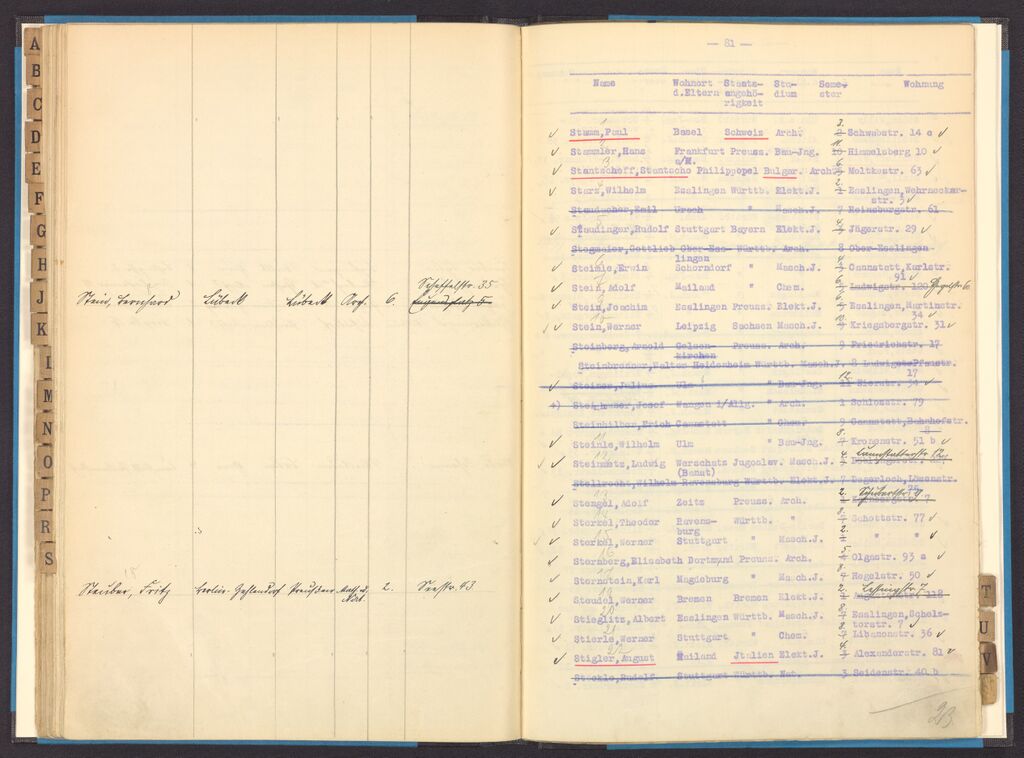 A
B
C
D
E
F
G
H
J
K
L
M
N
O
P
R
S
Stein, Bernhard Lübeck Lübeck Arch. 6. Schaffelstr. 35
Steuber, Fritz Berlin-Zehlendorf Preussen 2. Seestr. 93
— 81 —
Name Wohnort Staats- Stu- Seme- Wohnung
d.Eltern angehö- dium ster
rigkeit
Stamm,Paul Basel Schweiz Arch. 3. Schwabstr. 14 a
Stammler,Hans Frankfurt Preuss. Bau-Jng. Himmelsberg 10
a/M.
Stantscheff,Stantscho Philippopel Bulgar. Arch. 6 Moltkestr. 63
Starz,Wilhelm Esslingen Württb. Elekt.J. 2 Esslingen,Wehrneckar-
str. 3
Staudacher,Emil Urach " Masch.J. 7 Reinsburgstr. 61
Staudinger,Rudolf Stuttgart Bayern Elekt.J. Jägerstr. 29
Stegmaier,Gottlieb Ober-Ess- Württb. Arch. 8 Ober-Esslingen
lingen
Steimle,Erwin Schorndorf " Masch.J. Cannstatt,Karlstr.
91
Stein,Adolf Mailand " Chem. Ludwigstr. 120
Stein,Joachim Esslingen Preuss. Elekt.J. Esslingen,Martinstr.
34
Stein,Werner Leipzig Sachsen Masch.J. 10. Kriegsbergstr. 31
Steinberg,Arnold Gelsen- Preuss. Arch. 9 Friedrichstr. 17
kirchen
Steinbrenner,Walter Heidenheim Württb. Masch.J. 8 Ludwigstr.
17
Steiner,Julius Ulm " Bau-Jng. 12. 34
Steinhauser,Josef Wangen i/Allg. " Arch. 1 Schlosstr. 79
Steinhilber,Erich Cannstatt " Chem. 9 Cannstatt,Bahnhofstr.
8
Steinle,Wilhelm Ulm " Bau-Jng. 8. Kronenstr. 51 b
Steinmetz,Ludwig Werschatz Jugoslav. Masch.J. 4. Cannstatterstr.
(Banat)
Stellrecht,Wilhelm Ravensburg Württb. Elekt.J. 7 Degerloch,Löwenstr.
25
Stengel,Adolf Zeitz Preuss. Arch. 2. Schubartstr.
Sterkel,Theodor Ravens- Württb. " 8. Schottstr. 77
burg
Sterkel,Werner Stuttgart " Masch.J. 2. " "
Sternberg,Elisabeth Dortmund Preuss. Arch. 5 Olgastr. 93 a
Sternstein,Karl Magdeburg " Masch.J. 8 Hegelstr. 50
Steudel,Werner Bremen Bremen Elekt.J. 2. Lessingstr. 7
Stieglitz,Albert Esslingen Württb. Masch.J. 8 Esslingen,Schelz-
torstr. 7
Stierle,Werner Stuttgart " Chem. 8 Libanonstr. 36
Stigler,August Mailand Jtalien Elekt.J. 4. Alexanderstr. 81
Stöckle,Rudolf Stuttgart Württb. Nat. 3 Seidenstr. 40 b
23
T
U
V